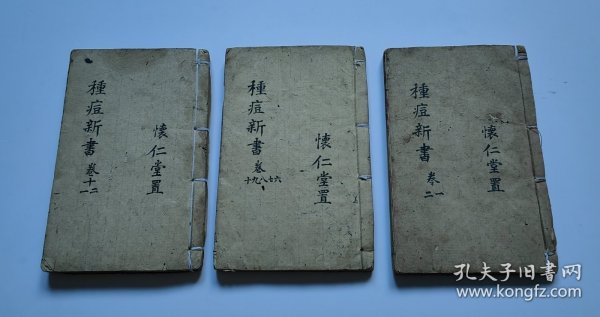 懷仁堂置
種痘新書 卷一二
懷仁堂置
種痘新書 卷六七八九十
懷仁堂置
種痘新書 卷十一二
孔夫子旧书网
www.kongfz.com